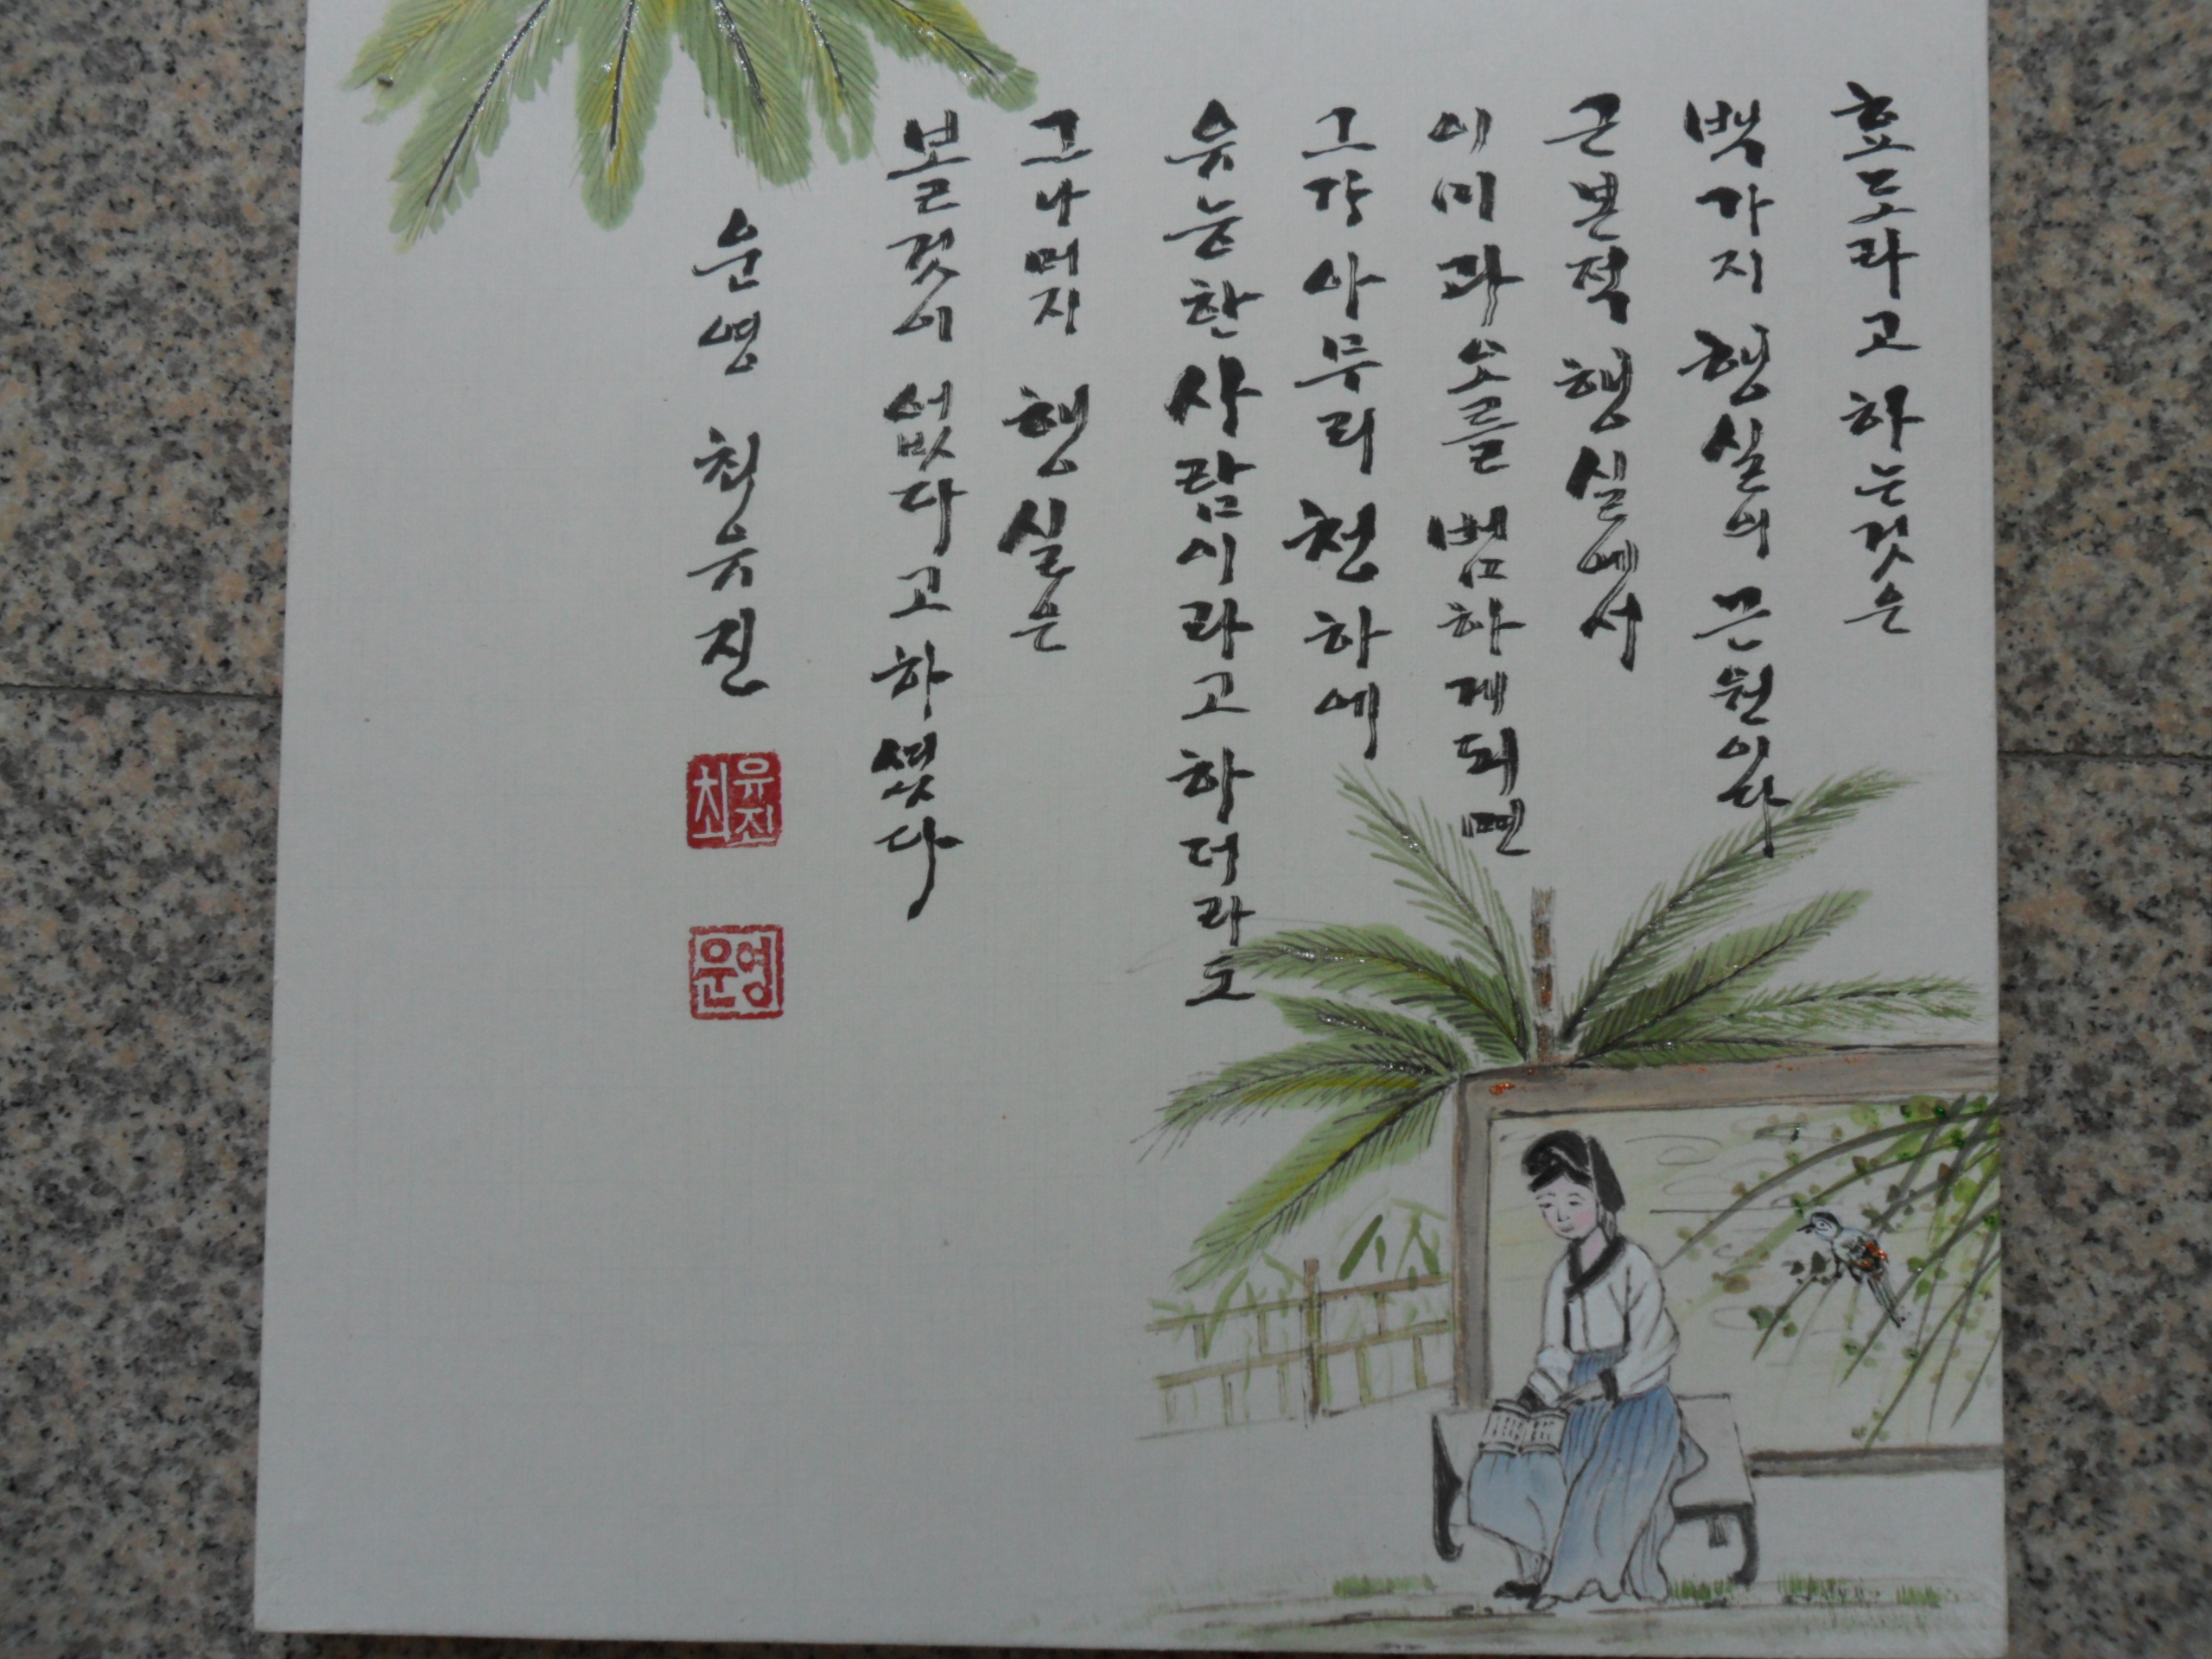 효도라고 하는것은
백가지 행실의 근원이다
근본적 행실에서
이미 과오를 범하게되면
그간 아무리 천하에
유능한 사람이라고 하더라도
그나머지 행실은
볼것이 없다고 하셨다
운영 최유진
최유진
운영